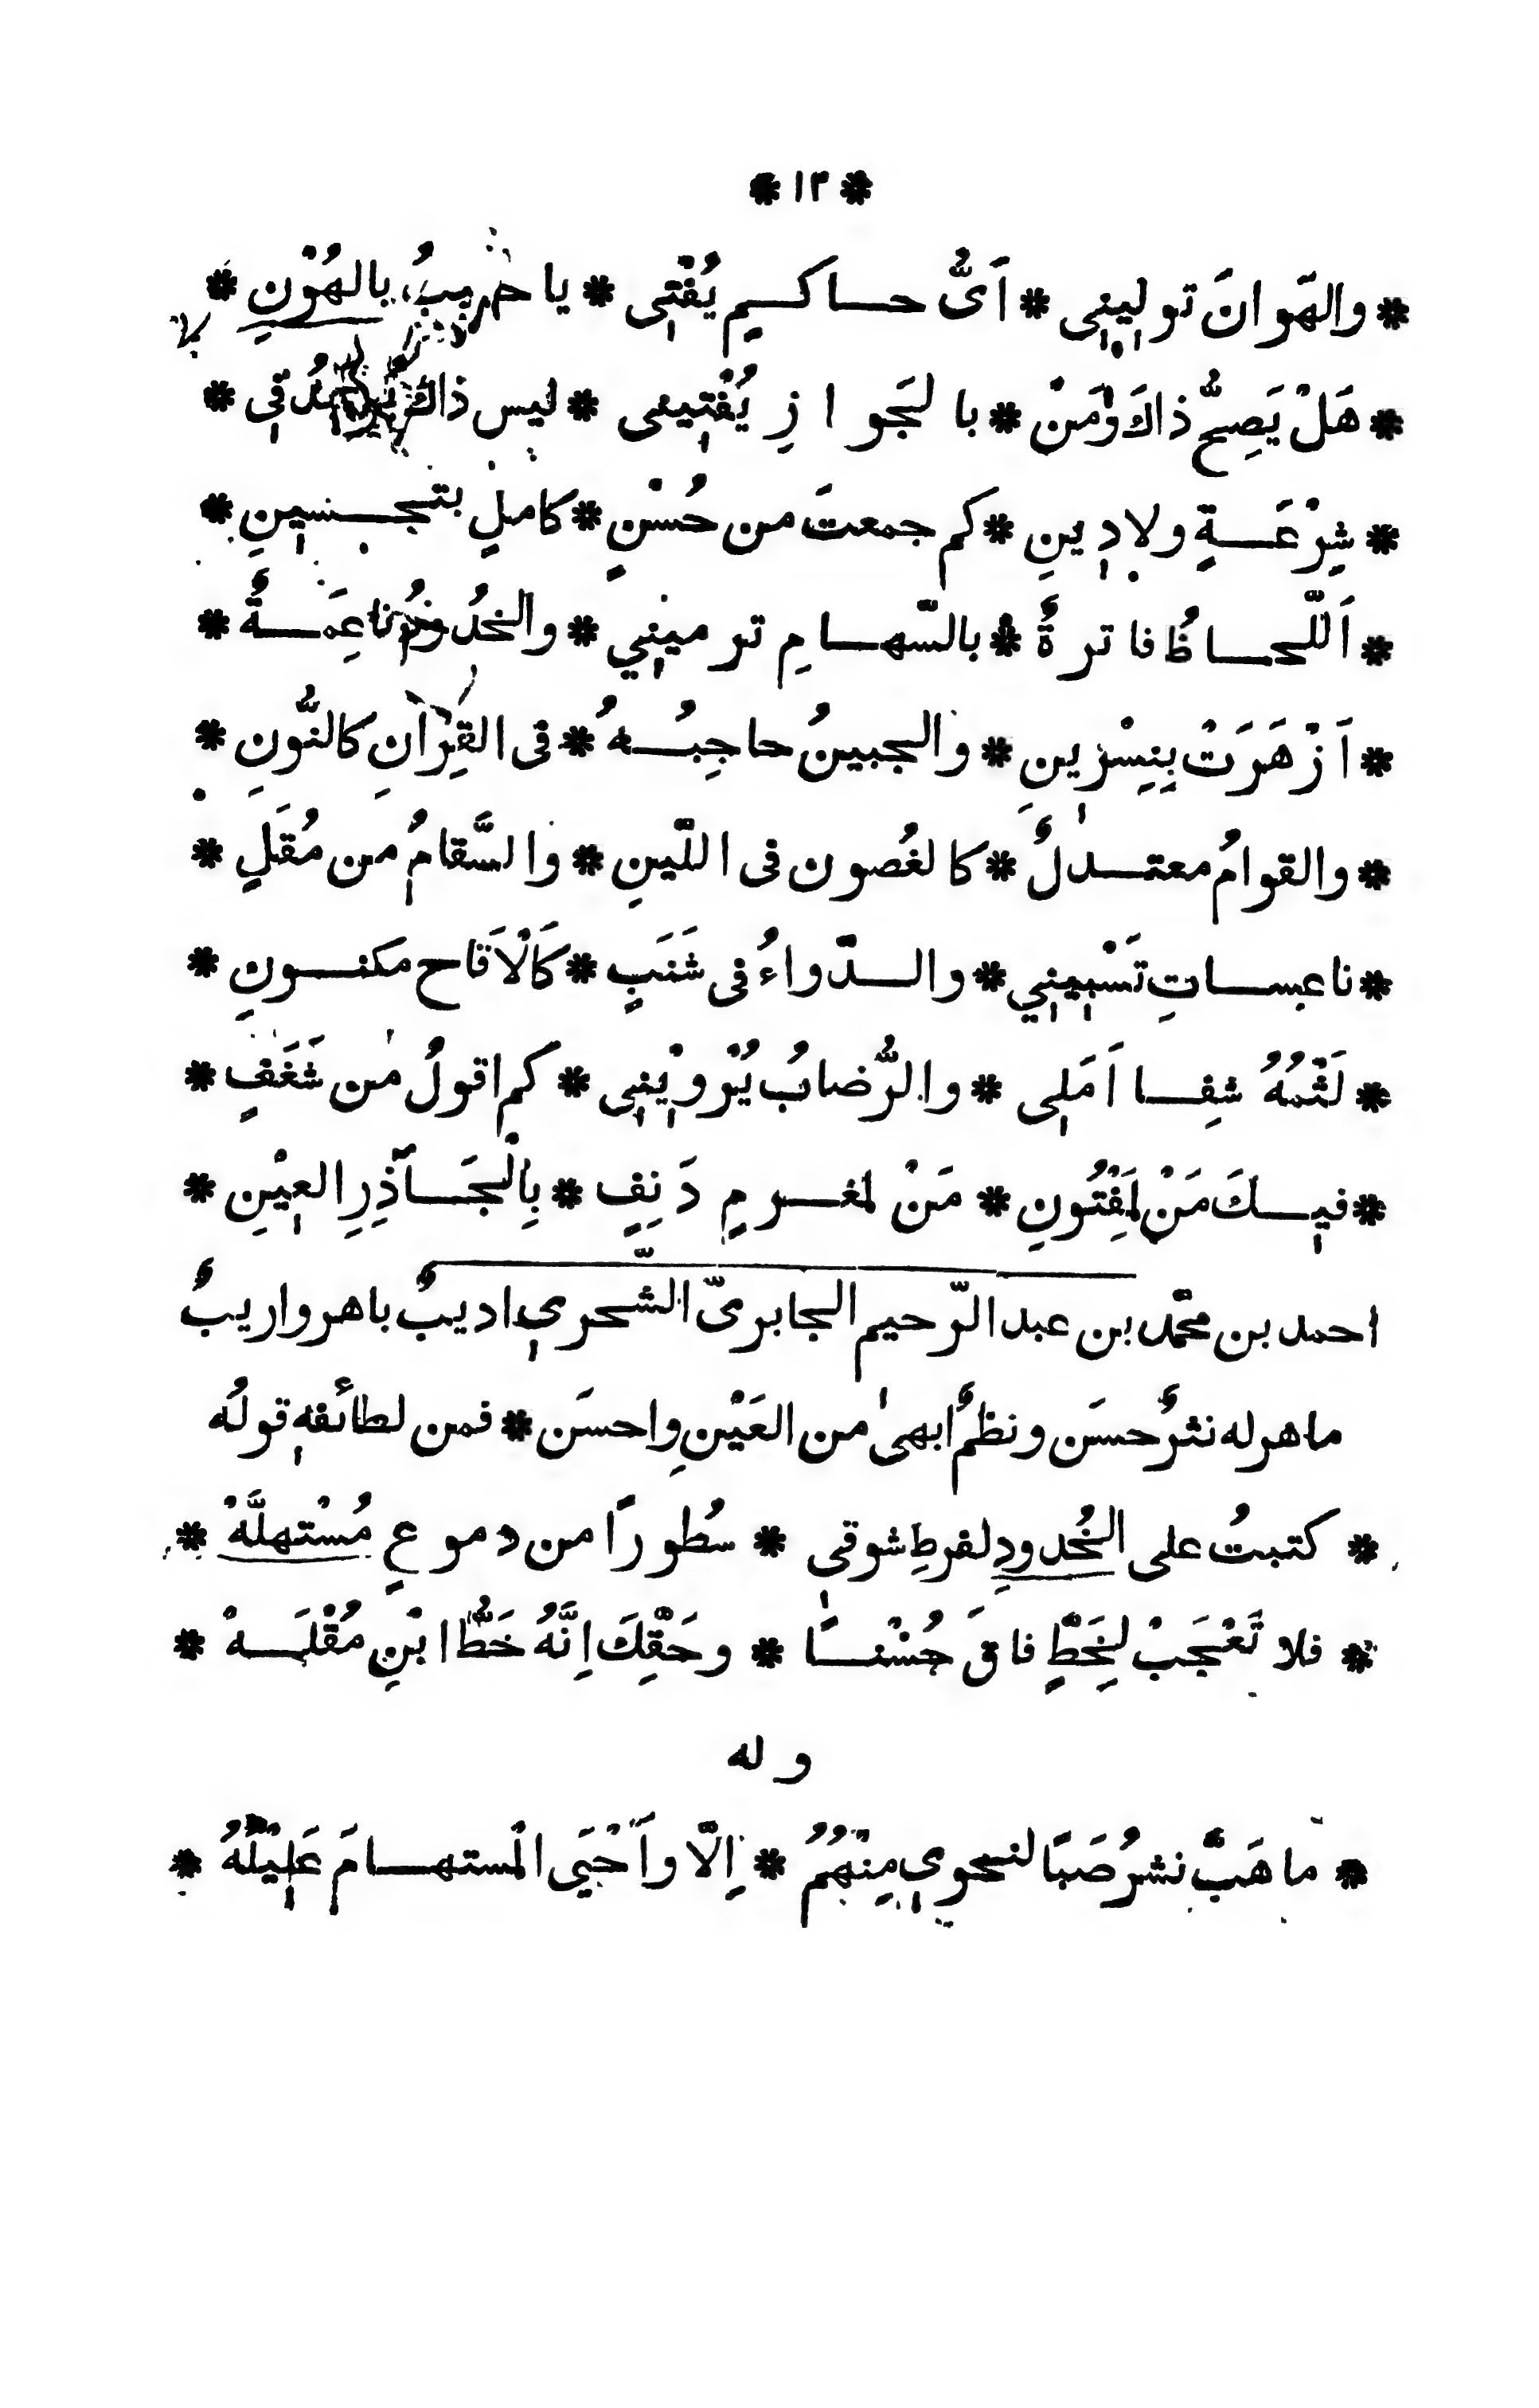 * ١٣ *
* والهَوانَ توليٖنٖي * اَیُّ حاكمٍ يُفْتٖي * يا بالهُوْنِ *
* هَلْ يَصِحُّ ذاكَ وَمَنْ * بالجَوازِ يُفْتِينى * ليس ذاك فٖي *
* شِرْعَةٍ ولا دٖينِ * كم جمعتَ من حُسْنٍ * كاملٍ بتجسٖينِ *
* اَللّحاظُ فاترةٌ * بالسّهامِ ترميٖني * والخدُودُ ناعِمَةٌ *
* اَزْهَرَتْ بِنِسْرٖينِ * والجبينُ حاجِبُهُ * فى القِرَانِ كالنُّونِ *
* والقوامُ معتدلٌ * كالغُصون فى اللّينِ * والسَّقامُ من مُقَلٍ *
* ناعساتِ تَسْبٖينٖي * والدّواءُ فى شَنَبٍ * كَالْاَقاح مكنونِ *
* لَثْمُهُ شفِا اَمَلٖى * والرُّضابُ يُرْوٖيْنٖى * كم اقولُ من شَغَفٍ *
* فيٖكَ مَنْ لِمَفْتُونِ * مَنْ لمغرمٍ دَنِفٍ * بِالْجَآذِرِ العٖيْنِ *
احمد بن محمّد بن عبد الرّحيم الجابرىّ الشّحرىٖ اديبٌ باهر واريبٌ
ماهر له نثرٌ حسَن ونظمٌ ابهىٰ من العَيْنِ واحسَن * فمن لطائفهٖ قولُه
* كتبتُ على الخُدودِ لفرطِ شوقى * سُطورًا من دموعٍ مُسْتهلَّهْ *
* فلا تَعْجَبْ لِخَطٍّ فاقَ حُسْنًا * وحَقِّكَ اِنَّهُ خَطُّ ابْنِ مُقْلَهْ *
وله
* ما هَبَّ نشرُ صَبًا لنحوىٖ مِنْهُمُ * اِلّا واَحْيَى المُستهامَ عَلٖيْلُهُ *